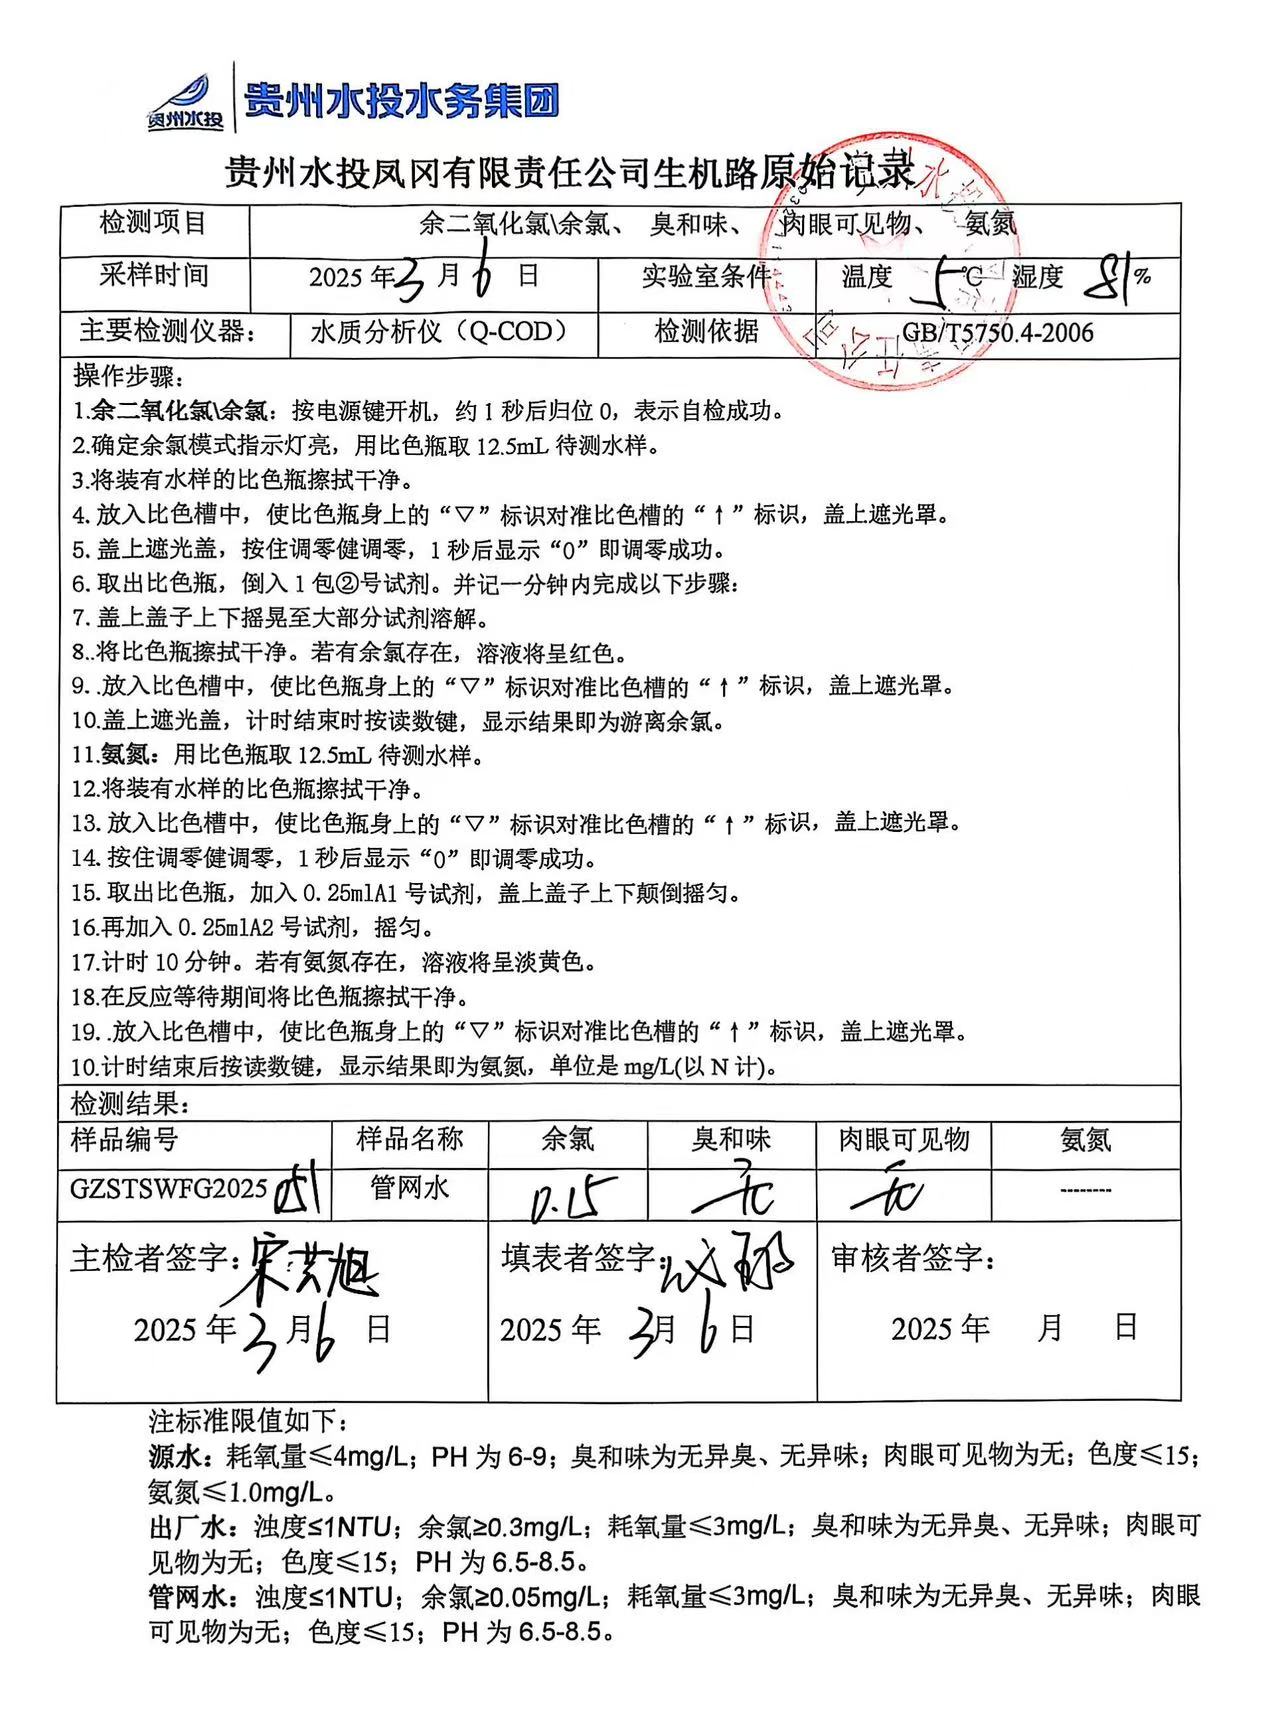 贵州水投 贵州水投水务集团
贵州水投凤冈有限责任公司生机路原始记录
检测项目 余二氧化氯\余氯、 臭和味、 肉眼可见物、 氨氮
采样时间 2025年3月6日 实验室条件 温度 5℃ 湿度 81%
主要检测仪器： 水质分析仪（Q-COD） 检测依据 GB/T5750.4-2006
操作步骤：
1.余二氧化氯\余氯：按电源键开机，约1秒后归位0，表示自检成功。
2.确定余氯模式指示灯亮，用比色瓶取12.5mL待测水样。
3.将装有水样的比色瓶擦拭干净。
4. 放入比色槽中，使比色瓶身上的“▽”标识对准比色槽的“↑”标识，盖上遮光罩。
5. 盖上遮光盖，按住调零健调零，1秒后显示“0”即调零成功。
6. 取出比色瓶，倒入1包②号试剂。并记一分钟内完成以下步骤：
7. 盖上盖子上下摇晃至大部分试剂溶解。
8..将比色瓶擦拭干净。若有余氯存在，溶液将呈红色。
9. .放入比色槽中，使比色瓶身上的“▽”标识对准比色槽的“↑”标识，盖上遮光罩。
10.盖上遮光盖，计时结束时按读数键，显示结果即为游离余氯。
11.氨氮：用比色瓶取12.5mL待测水样。
12.将装有水样的比色瓶擦拭干净。
13. 放入比色槽中，使比色瓶身上的“▽”标识对准比色槽的“↑”标识，盖上遮光罩。
14. 按住调零健调零，1秒后显示“0”即调零成功。
15. 取出比色瓶，加入0.25mlA1号试剂，盖上盖子上下颠倒摇匀。
16.再加入0.25mlA2号试剂，摇匀。
17.计时10分钟。若有氨氮存在，溶液将呈淡黄色。
18.在反应等待期间将比色瓶擦拭干净。
19. .放入比色槽中，使比色瓶身上的“▽”标识对准比色槽的“↑”标识，盖上遮光罩。
10.计时结束后按读数键，显示结果即为氨氮，单位是mg/L(以N计)。
检测结果：
样品编号 样品名称 余氯 臭和味 肉眼可见物 氨氮
GZSTSWFG2025051 管网水 0.15 无 无 --------
主检者签字：宋芸旭 填表者签字： 审核者签字：
2025年3月6日 2025年 3月6日 2025年 月 日
注标准限值如下：
源水：耗氧量≤4mg/L；PH为6-9；臭和味为无异臭、无异味；肉眼可见物为无；色度≤15；
氨氮≤1.0mg/L。
出厂水：浊度≤1NTU；余氯≥0.3mg/L；耗氧量≤3mg/L；臭和味为无异臭、无异味；肉眼可
见物为无；色度≤15；PH为6.5-8.5。
管网水：浊度≤1NTU；余氯≥0.05mg/L；耗氧量≤3mg/L；臭和味为无异臭、无异味；肉眼
可见物为无；色度≤15；PH为6.5-8.5。